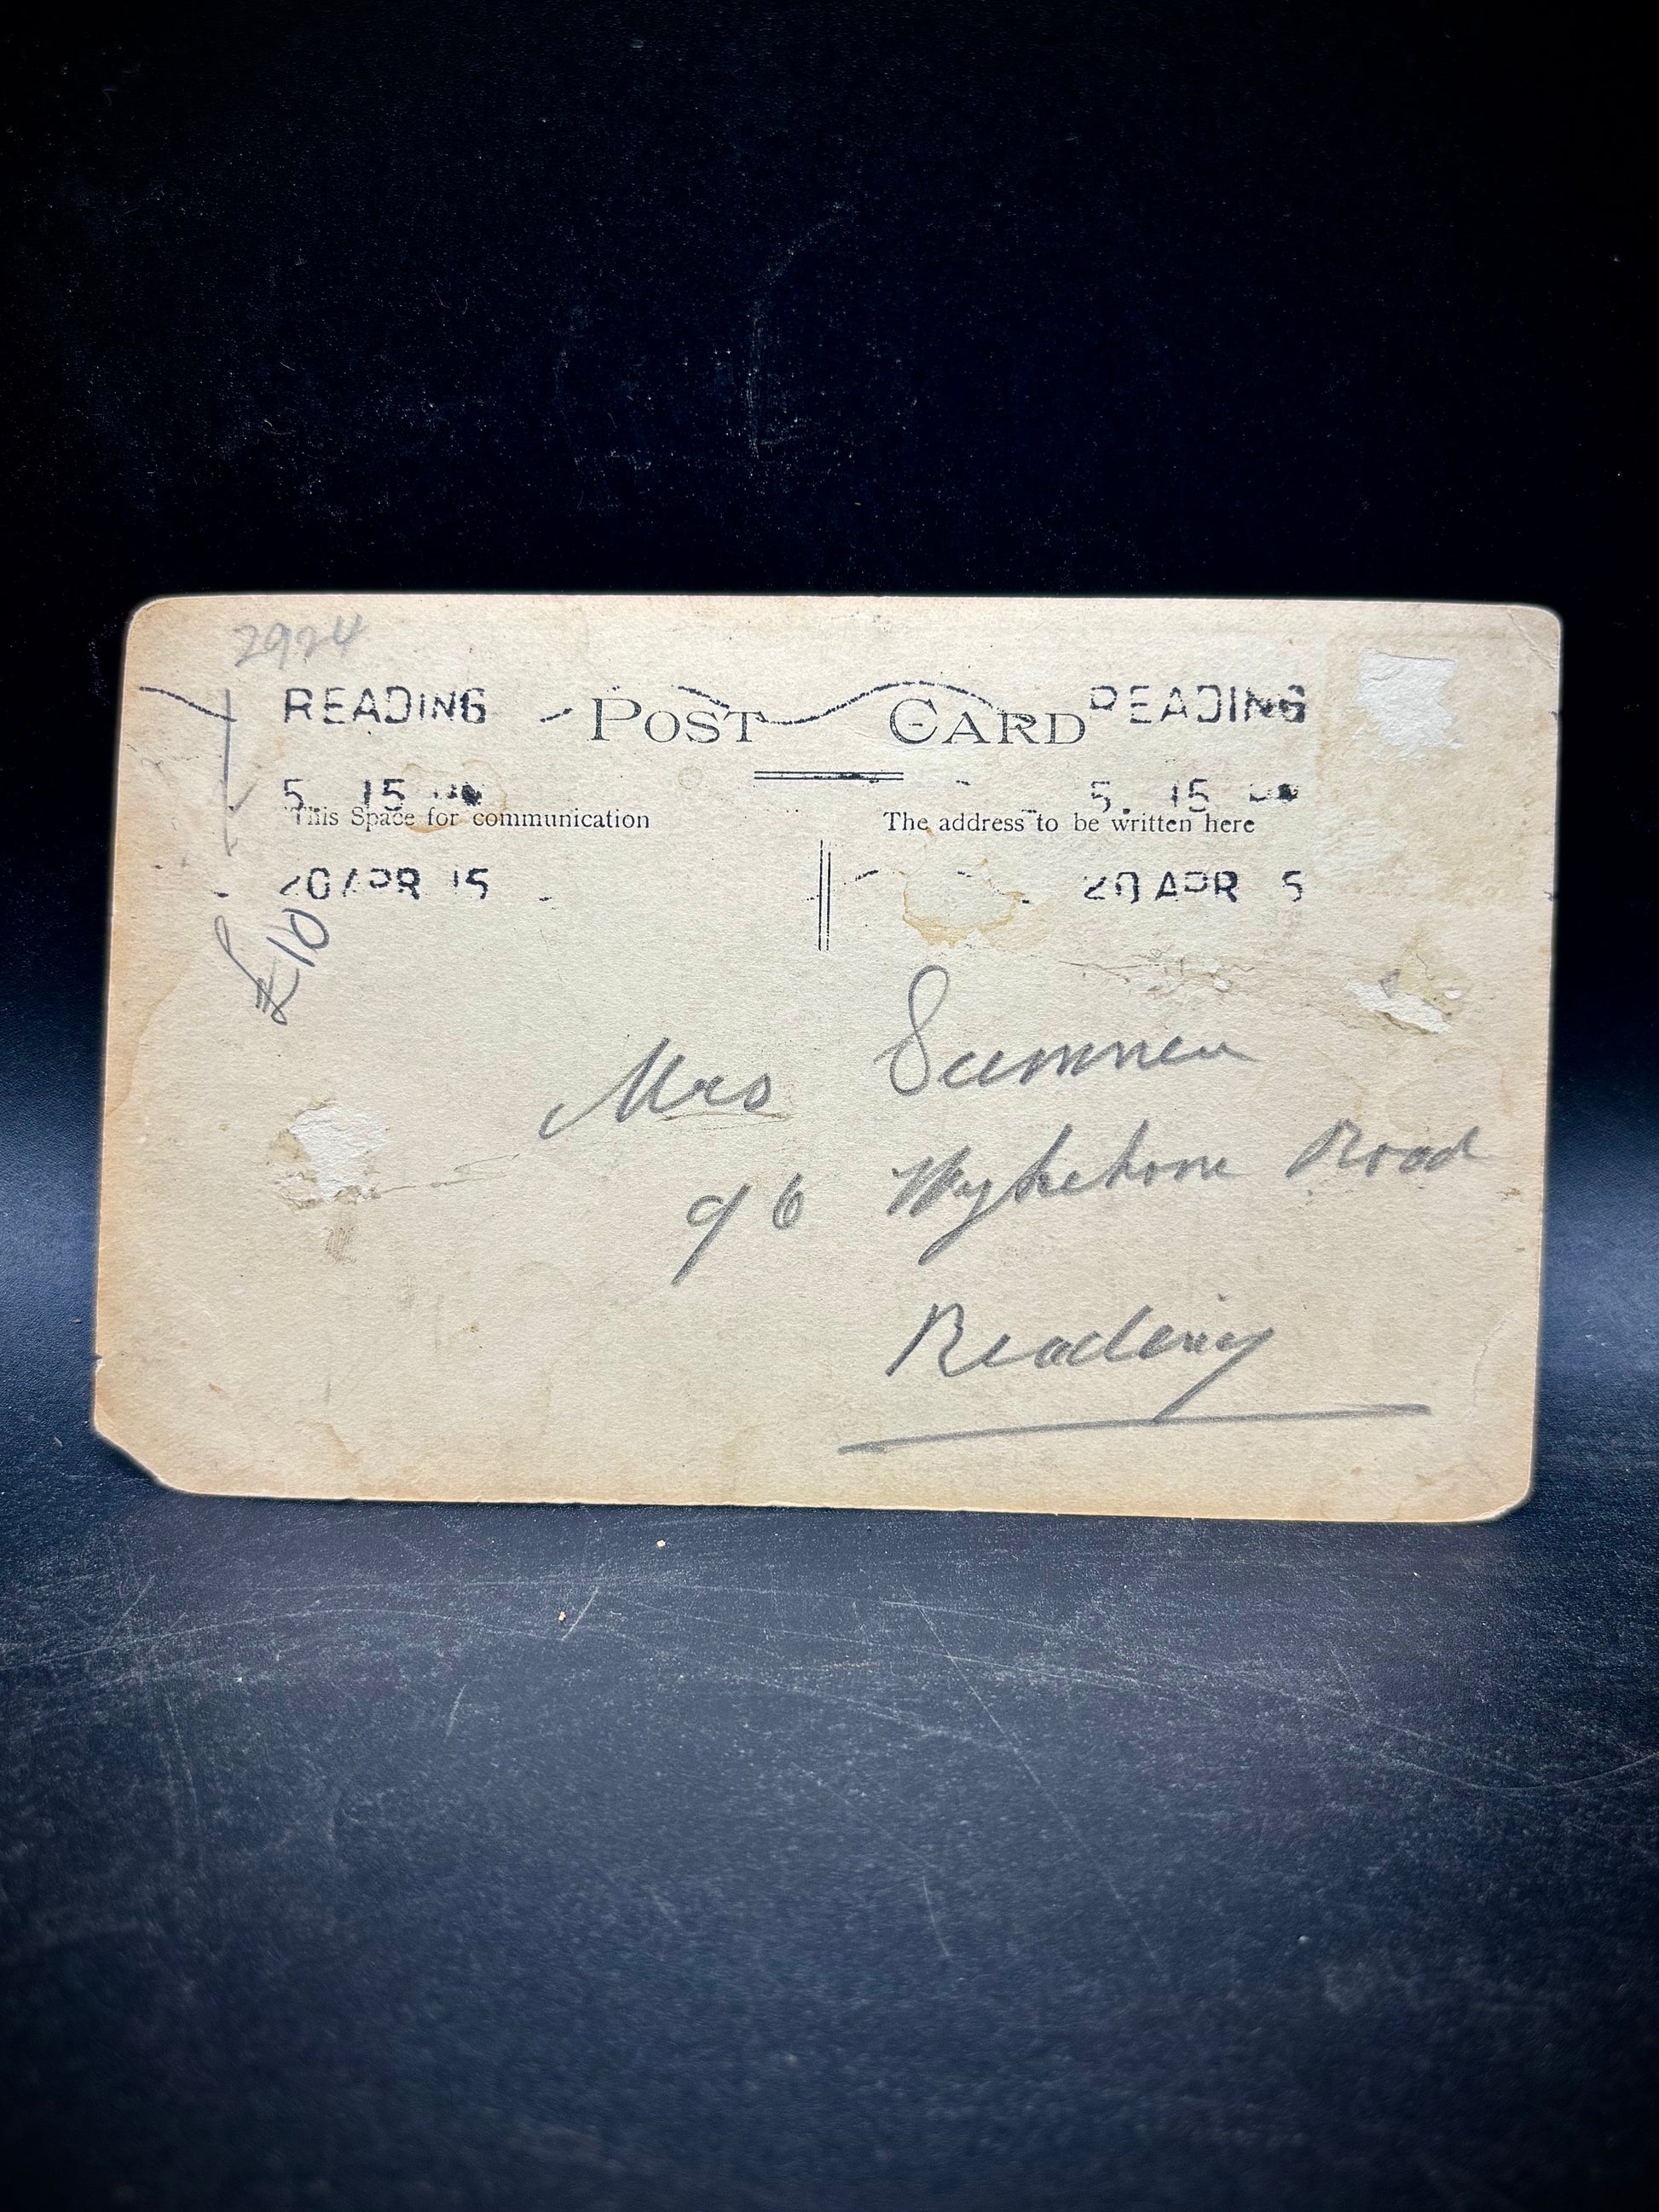 2924
READING POST CARD READING
5. 15 PM 5. 15 PM
This Space for communication The address to be written here
20 APR 15 20 APR 5
£10
Mrs Sumner
96 Wykehome Road
Reading